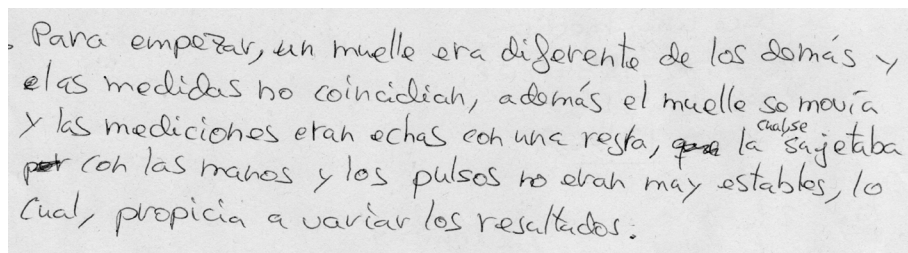 . Para empezar, un muelle era diferente de los demás y
las medidas no coincidian, además el muelle se movía
y las mediciones eran echas con una regla, la cual se sujetaba
con las manos y los pulsos no eran muy estables, lo
cual, propicia a variar los resultados.